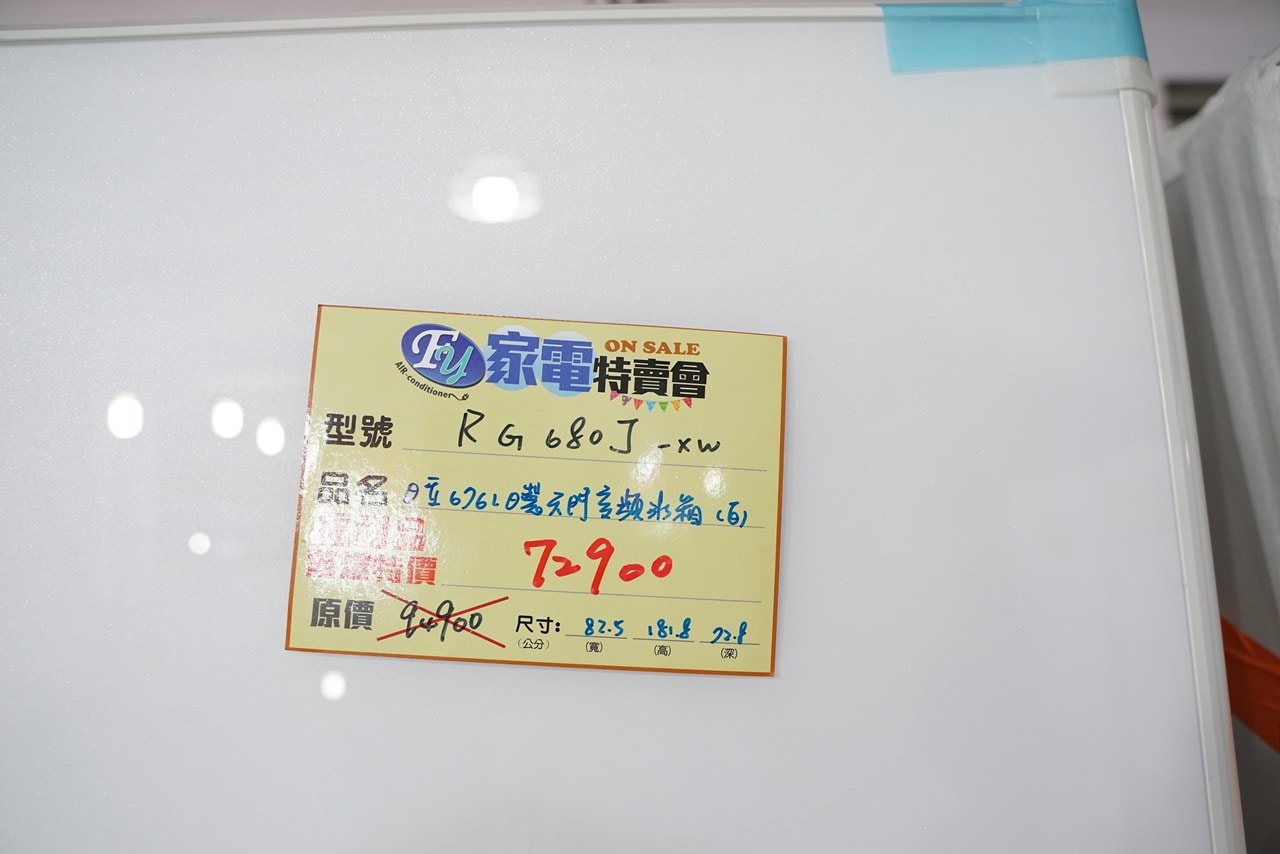 FY
AIR-conditioner
家電特賣會
ON SALE
型號 RG680J-XW
品名 日立676L日製六門變頻冰箱(白)
福利品
特價 72900
原價 94900
尺寸: 82.5 181.8 72.8
(公分) (寬) (高) (深)